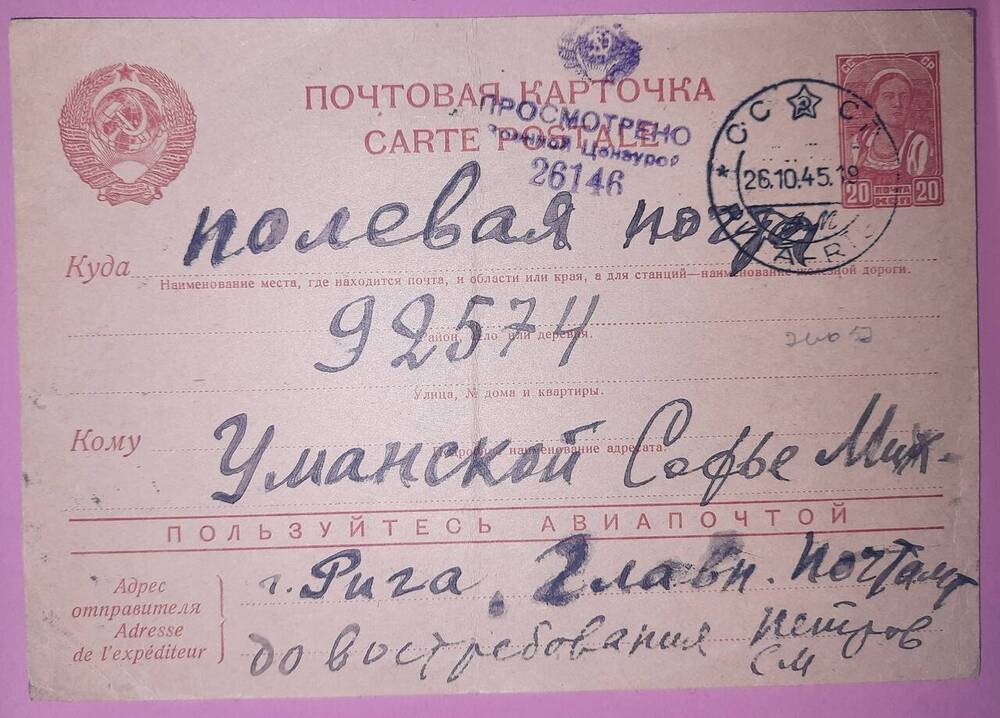 ПОЧТОВАЯ КАРТОЧКА
CARTE POSTALE
ПРОСМОТРЕНО
Военной Цензурой
26146
СС СР
20 ПОЧТА 20
КОП
СС С
26.10.45.19
Куда полевая почта
Наименование места, где находится почта, и области или края, а для станций—наименование железной дороги.
92574
Район, село или деревня.
Улица, № дома и квартиры.
Кому Уманской Софье Мих-
Подробное наименование адресата.
ПОЛЬЗУЙТЕСЬ АВИАПОЧТОЙ
Адрес
отправителя
Adresse
de l'expéditeur
г. Рига. Главн. почтамт
до востребования Петров
СМ